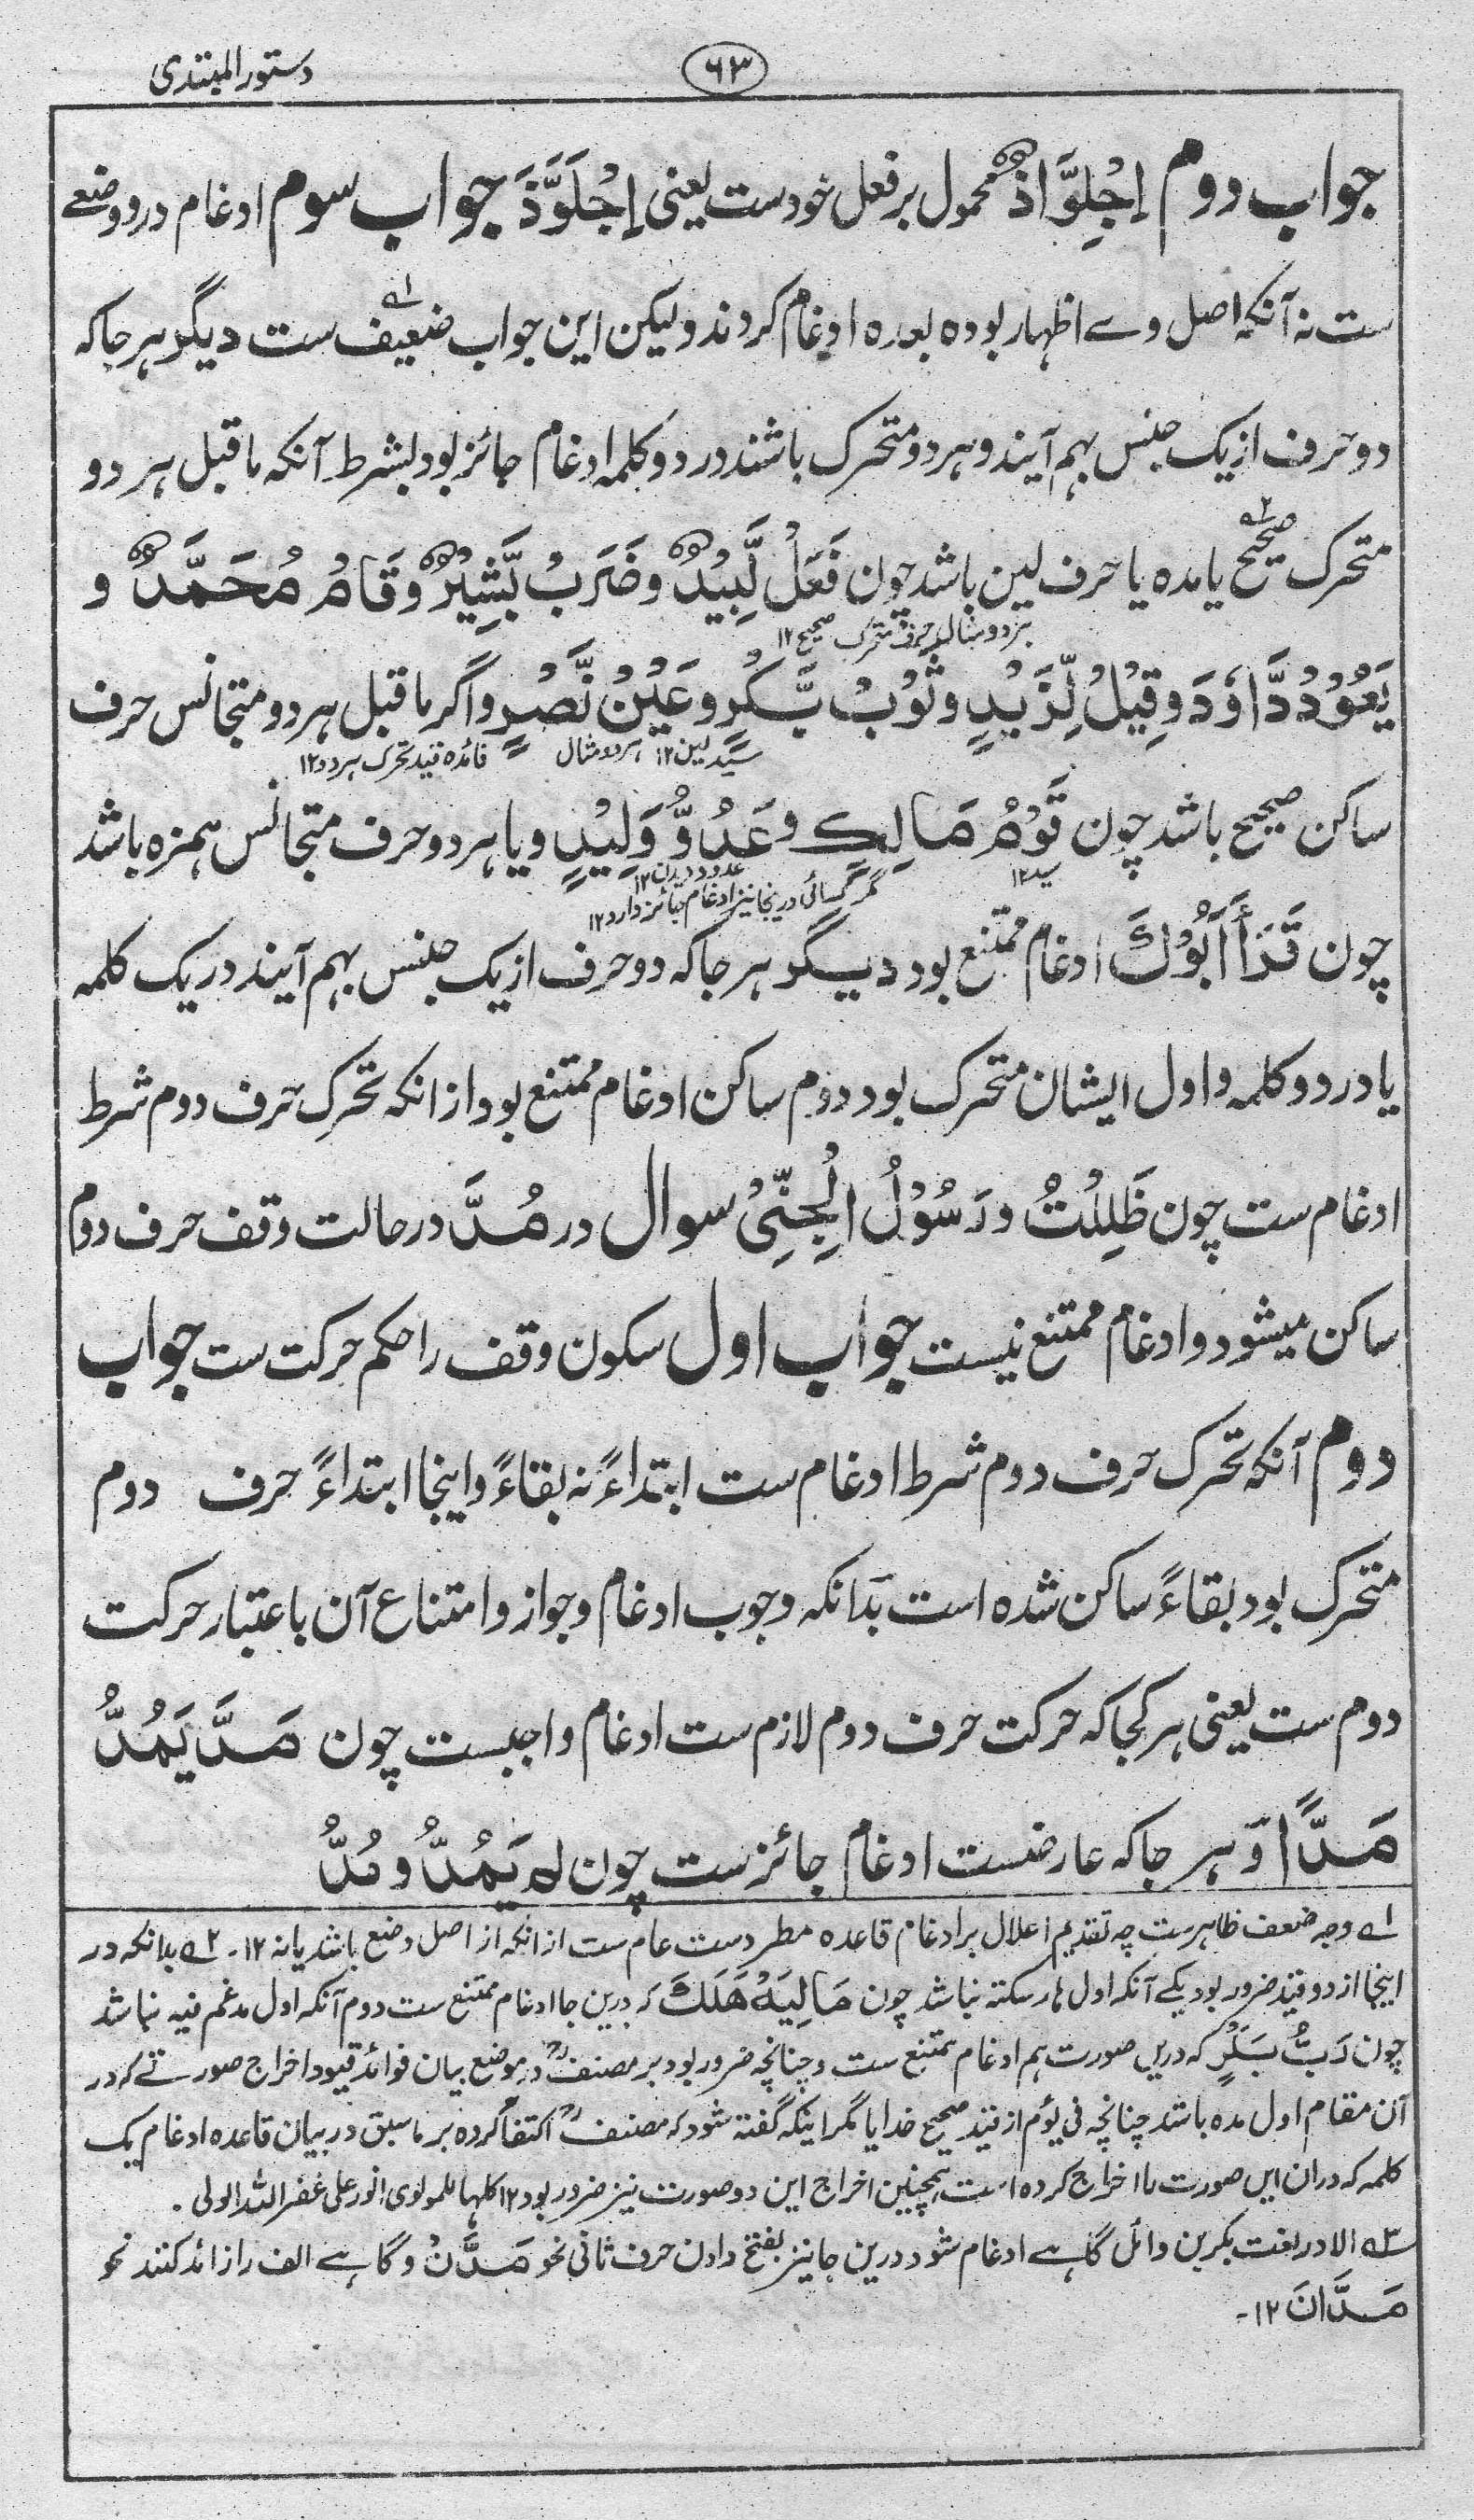 دستور المبتدی
۶۳
جواب دوم اِجْلِوَّاذٌ محمول بر فعل خودست یعنی اِجْلَوَّذَ جواب سوم ادغام در و وضعے
ست نہ آنکہ اصل وے اظہار بودہ بعدہ ادغام کردند ولیکن این جواب ضعیف۱؎ ست دیگر ہر جا کہ
دو حرف از یک جنس بہم آیند و ہر دو متحرک باشند در دو کلمہ ادغام جائز بود بشرط آنکہ ماقبل ہر دو
متحرک صحیح۲؎ یا مدہ یا حرف لین باشد چون فَعَلْ لَّبِیْدٌ و ضَرَبْ بَّشِیْرٌ و قَامْ مُحَمَّدٌ و
ہر دو مثال حرف متحرک صحیح ۱۲
یَعُوْدْ دَّاوٗدَ و قِیْلْ لِّزَیْدٍ و ثَوْبْ بَّکْرٍ و عَیْنْ نَّصْرٍ و اگر ماقبل ہر دو متجانس حرف
لین ۱۲ ہر دو مثال فائدہ قید تحرک ہر دو ۱۲
ساکن صحیح باشد چون قَوْمُ مَالِکٍ و عَدُوُّ وَلِیْدٍ و یا ہر دو حرف متجانس ہمزہ باشد
مگر کسائی درینجا نیز ادغام جائز دارد ۱۲
چون قَرَأَ أَبُوْكَ ادغام ممتنع بود دیگر ہر جا کہ دو حرف از یک جنس بہم آیند در یک کلمہ
یا در دو کلمہ و اول ایشان متحرک بود دوم ساکن ادغام ممتنع بود از انکہ تحرک حرف دوم شرط
ادغام ست چون ظَلِلْتُ و رَسُوْلُ الْجِنِّیْ سوال در مُدَّ در حالت وقف حرف دوم
ساکن میشود و ادغام ممتنع نیست جواب اول سکون وقف را حکم حرکت ست جواب
دوم آنکہ تحرک حرف دوم شرط ادغام ست ابتداءً نہ بقاءً و اینجا ابتداءً حرف دوم
متحرک بود بقاءً ساکن شدہ است بدانکہ وجوب ادغام و جواز و امتناع آن باعتبار حرکت
دوم ست یعنی ہر کجا کہ حرکت حرف دوم لازم ست ادغام واجبست چون مَدَّ یَمُدُّ
مَدًّا و ہر جا کہ عارضست ادغام جائز ست چون لم یَمُدُّ و مُدُّ
۱؎ وجہ ضعف ظاہر ست چہ تقدیم اعلال بر ادغام قاعدہ مطردست عام ست از انکہ از اصل وضع باشد یا نہ ۱۲۔ ۲؎ بدانکہ در
اینجا از دو قید ضرور بود یکے آنکہ اول ہاء سکتہ نباشد چون مَالِیَهْ هَلَكَ کہ درین جا ادغام ممتنع ست دوم آنکہ اول مدغم فیہ نباشد
چون رَبُّ بَکْرٍ کہ دریں صورت ہم ادغام ممتنع ست و چنانچہ ضرور بود بر مصنفؒ در موضع بیان فوائد قیود اخراج صورتے کہ در
آن مقام اول مدہ باشد چنانچہ فی یوم از قید صحیح خدایا مگر اینکہ گفتہ شود کہ مصنفؒ اکتفا کردہ بر ماسبق در بیان قاعدہ ادغام یک
کلمہ کہ دران ایں صورت را اخراج کردہ است ہمچنین اخراج این دو صورت نیز ضرور بود ۱۲ کلہا للمولوی انور علی غفر اللہ الولی۔
۳؎ الا در لغت بکر بن وائل گاہے ادغام شود درین جا نیز بفتح دادن حرف ثانی نحو مَدَّنَ و گاہے الف را زائد کنند نحو
مَدَّانَ ۱۲۔